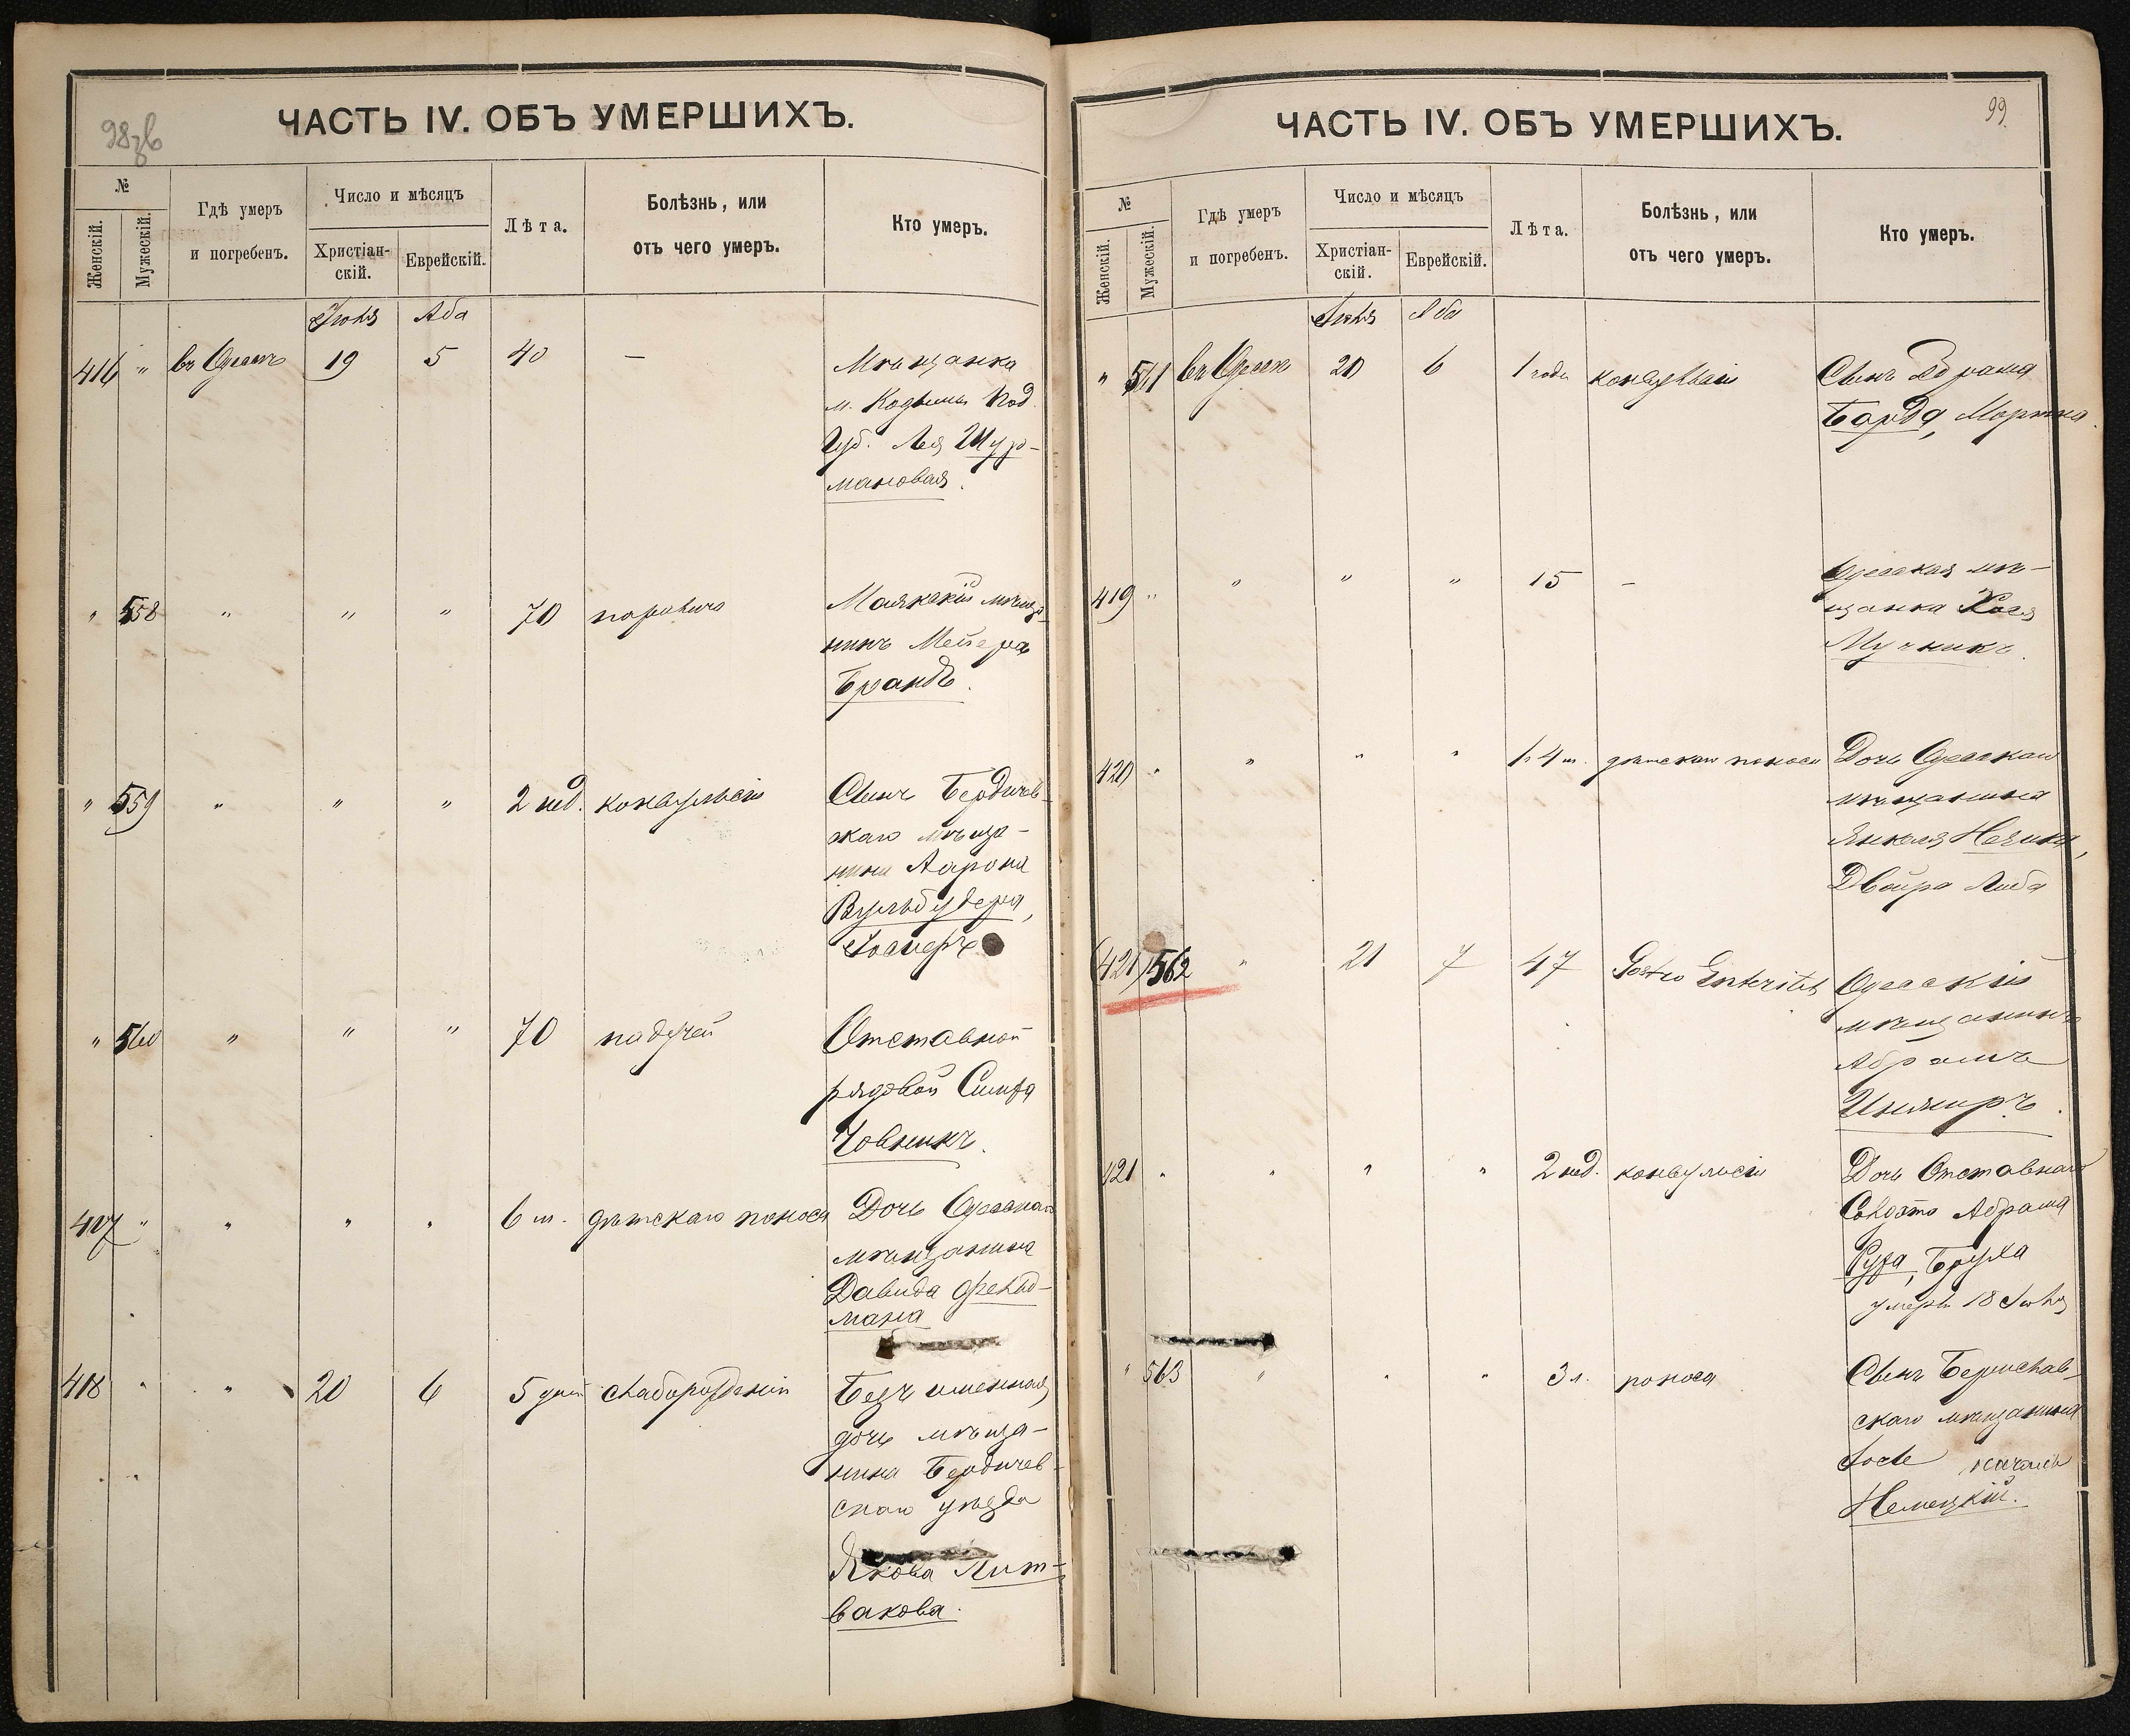 98об
ЧАСТЬ IV. ОБЪ УМЕРШИХЪ.
№
Женскій.
Мужескій.
Гдѣ умеръ
и погребенъ.
Число и мѣсяцъ
Христіан-
скій.
Еврейскій.
Лѣта.
Болѣзнь, или
отъ чего умеръ.
Кто умеръ.
Іюля Аба
416 " въ Одессѣ 19 5 40 — Мѣщанка
м. Кодымы Под.
Губ. Лея Шур-
мановая.
" 558 " " " 70 Маякскій мѣща-
нинъ Мейеръ
Брандъ.
" 559 " " " 2 нед. конвульсіи Сынъ Бердичев-
скаго мѣща-
нина Аарона
" 560 " " " 70 падучей Отставной
рядовой Симха
Човникъ.
417 " " " " 6 м. дѣтскаго поноса Дочь Одесскаго
мѣщанина
Давида Фельд-
мана
418 " " 20 6 5 дней слаборожденія Безъименная
дочь мѣща-
нина Бердичев-
скаго уѣзда
Якова Лит-
вакова.
99
ЧАСТЬ IV. ОБЪ УМЕРШИХЪ.
№
Женскій.
Мужескій.
Гдѣ умеръ
и погребенъ.
Число и мѣсяцъ
Христіан-
скій.
Еврейскій.
Лѣта.
Болѣзнь, или
отъ чего умеръ.
Кто умеръ.
Іюля Аба
" 561 въ Одессѣ 20 6 1 года конвульсіи Сынъ Абрама
419 " " " " 15 — Одесская мѣ-
щанка Хася
Мучникъ.
420 " " " " 1. 4 м. дѣтскаго поноса Дочь Одесскаго
мѣщанина
Янкеля
Двойра Либа
(421) 562 " 21 7 47 Gastro Enteritis Одесскій
мѣщанинъ
Абрамъ
421 " " " " 2 нед. конвульсіи Дочь Отставнаго
Солдата Абрама
Руфа, Бруха
умерла 18 Іюля
" 563 " " " 3 л. поноса Сынъ Бериславь-
скаго мѣщанина
Немецкій.